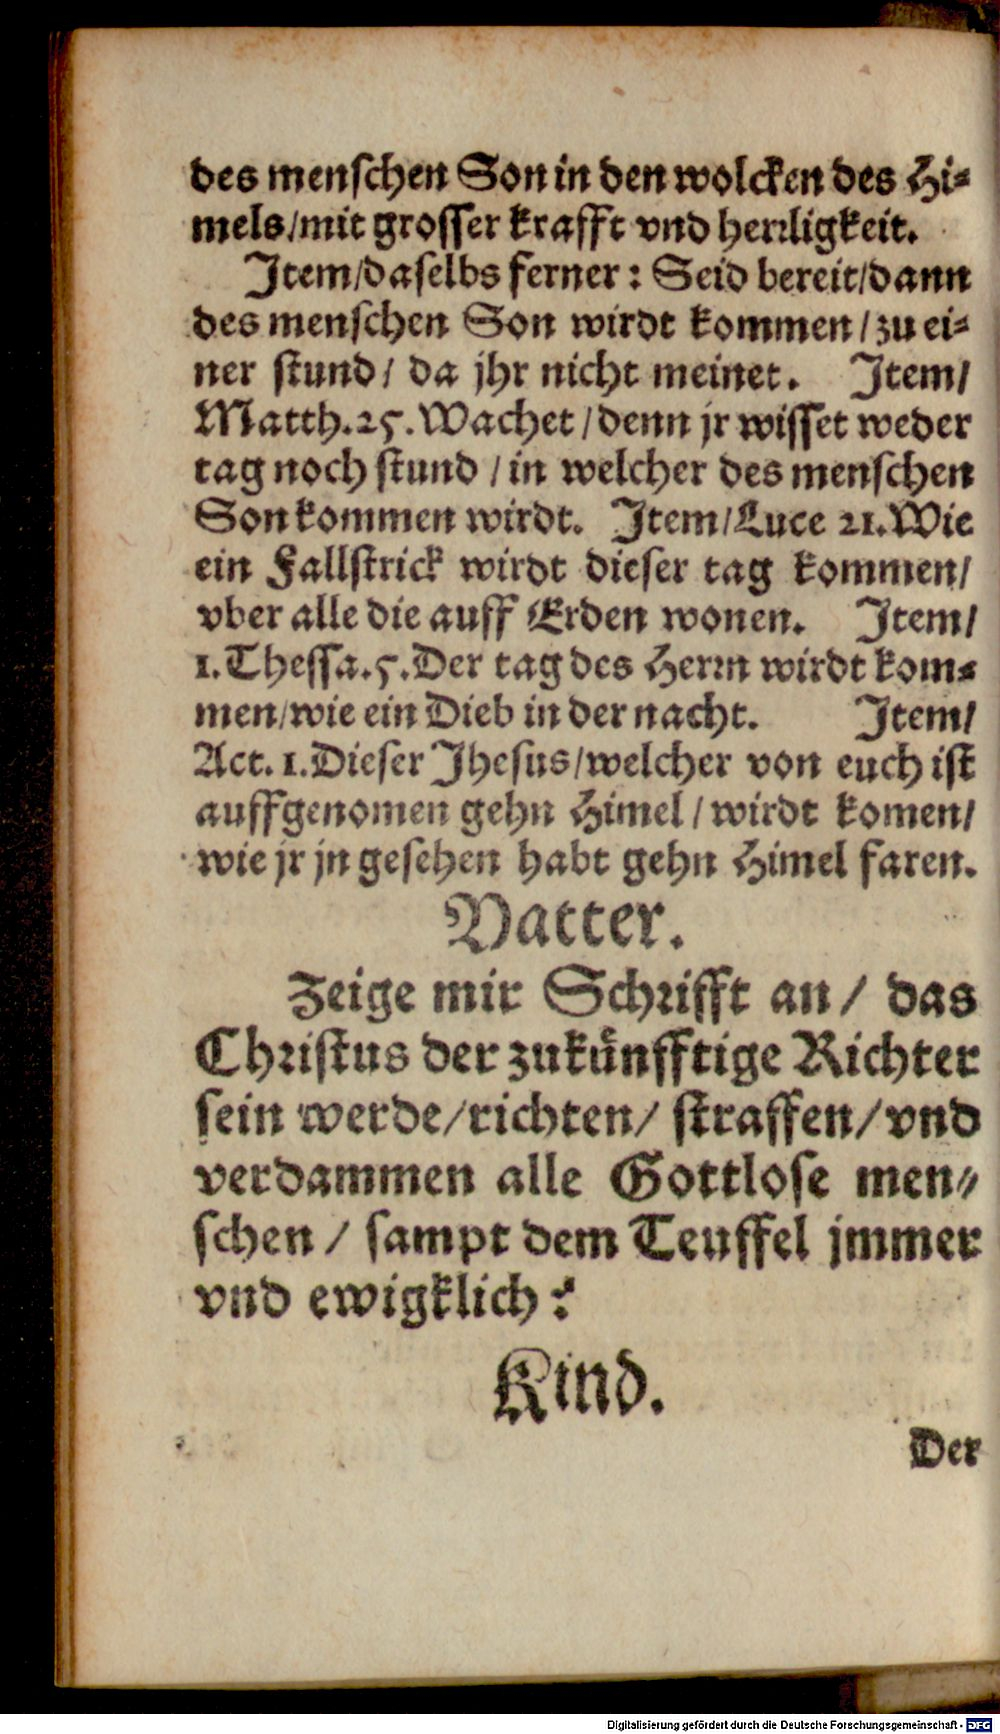 des menschen Son in den wolcken des Hi-
mels/mit grosser krafft vnd herrligkeit.
Item/daselbs ferner: Seid bereit/dann
des menschen Son wirdt kommen/zu ei-
ner stund/ da jhr nicht meinet. Item/
Matth.25. Wachet/denn jr wisset weder
tag noch stund/in welcher des menschen
Son kommen wirdt. Item/Luce 21. Wie
ein Fallstrick wirdt dieser tag kommen/
vber alle die auff Erden wonen. Item/
1. Thessa.5. Der tag des Herrn wirdt kom-
men/wie ein Dieb in der nacht. Item/
Act. 1. Dieser Jhesus/welcher von euch ist
auffgenomen gehn Himel/wirdt komen/
wie jr jn gesehen habt gehn Himel faren.
Vatter.
Zeige mir Schrifft an/ das
Christus der zukünfftige Richter
sein werde/richten/ straffen/vnd
verdammen alle Gottlose men-
schen/ sampt dem Teuffel jmmer
vnd ewigklich?
Kind.
Der
Digitalisierung gefördert durch die Deutsche Forschungsgemeinschaft - DFG